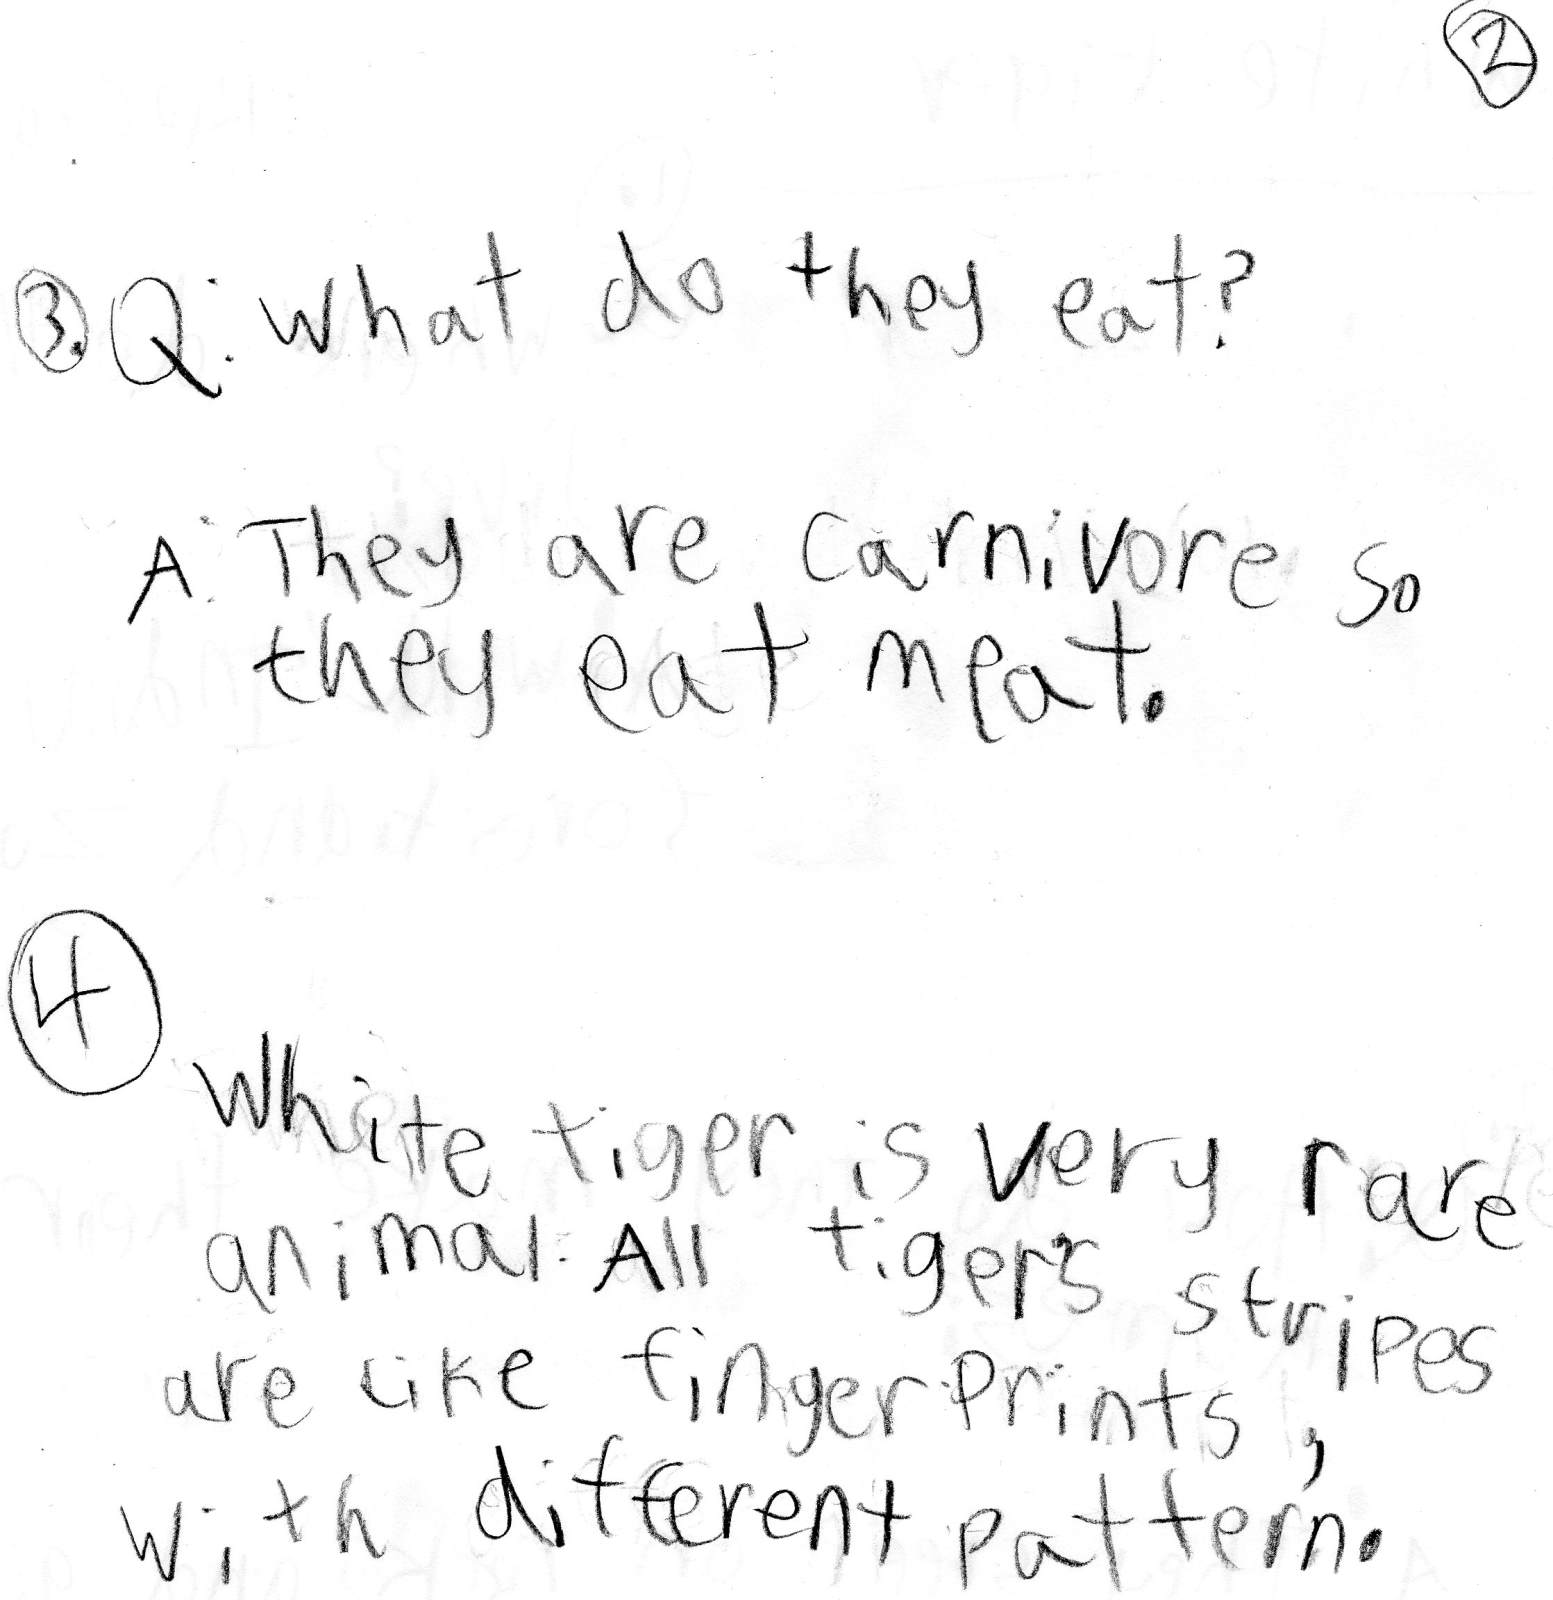 2
3. Q: What do they eat?
A: They are carnivore so
they eat meat.
4
White tiger is very rare
animal. All tiger's stripes
are like fingerprints,
with different pattern.